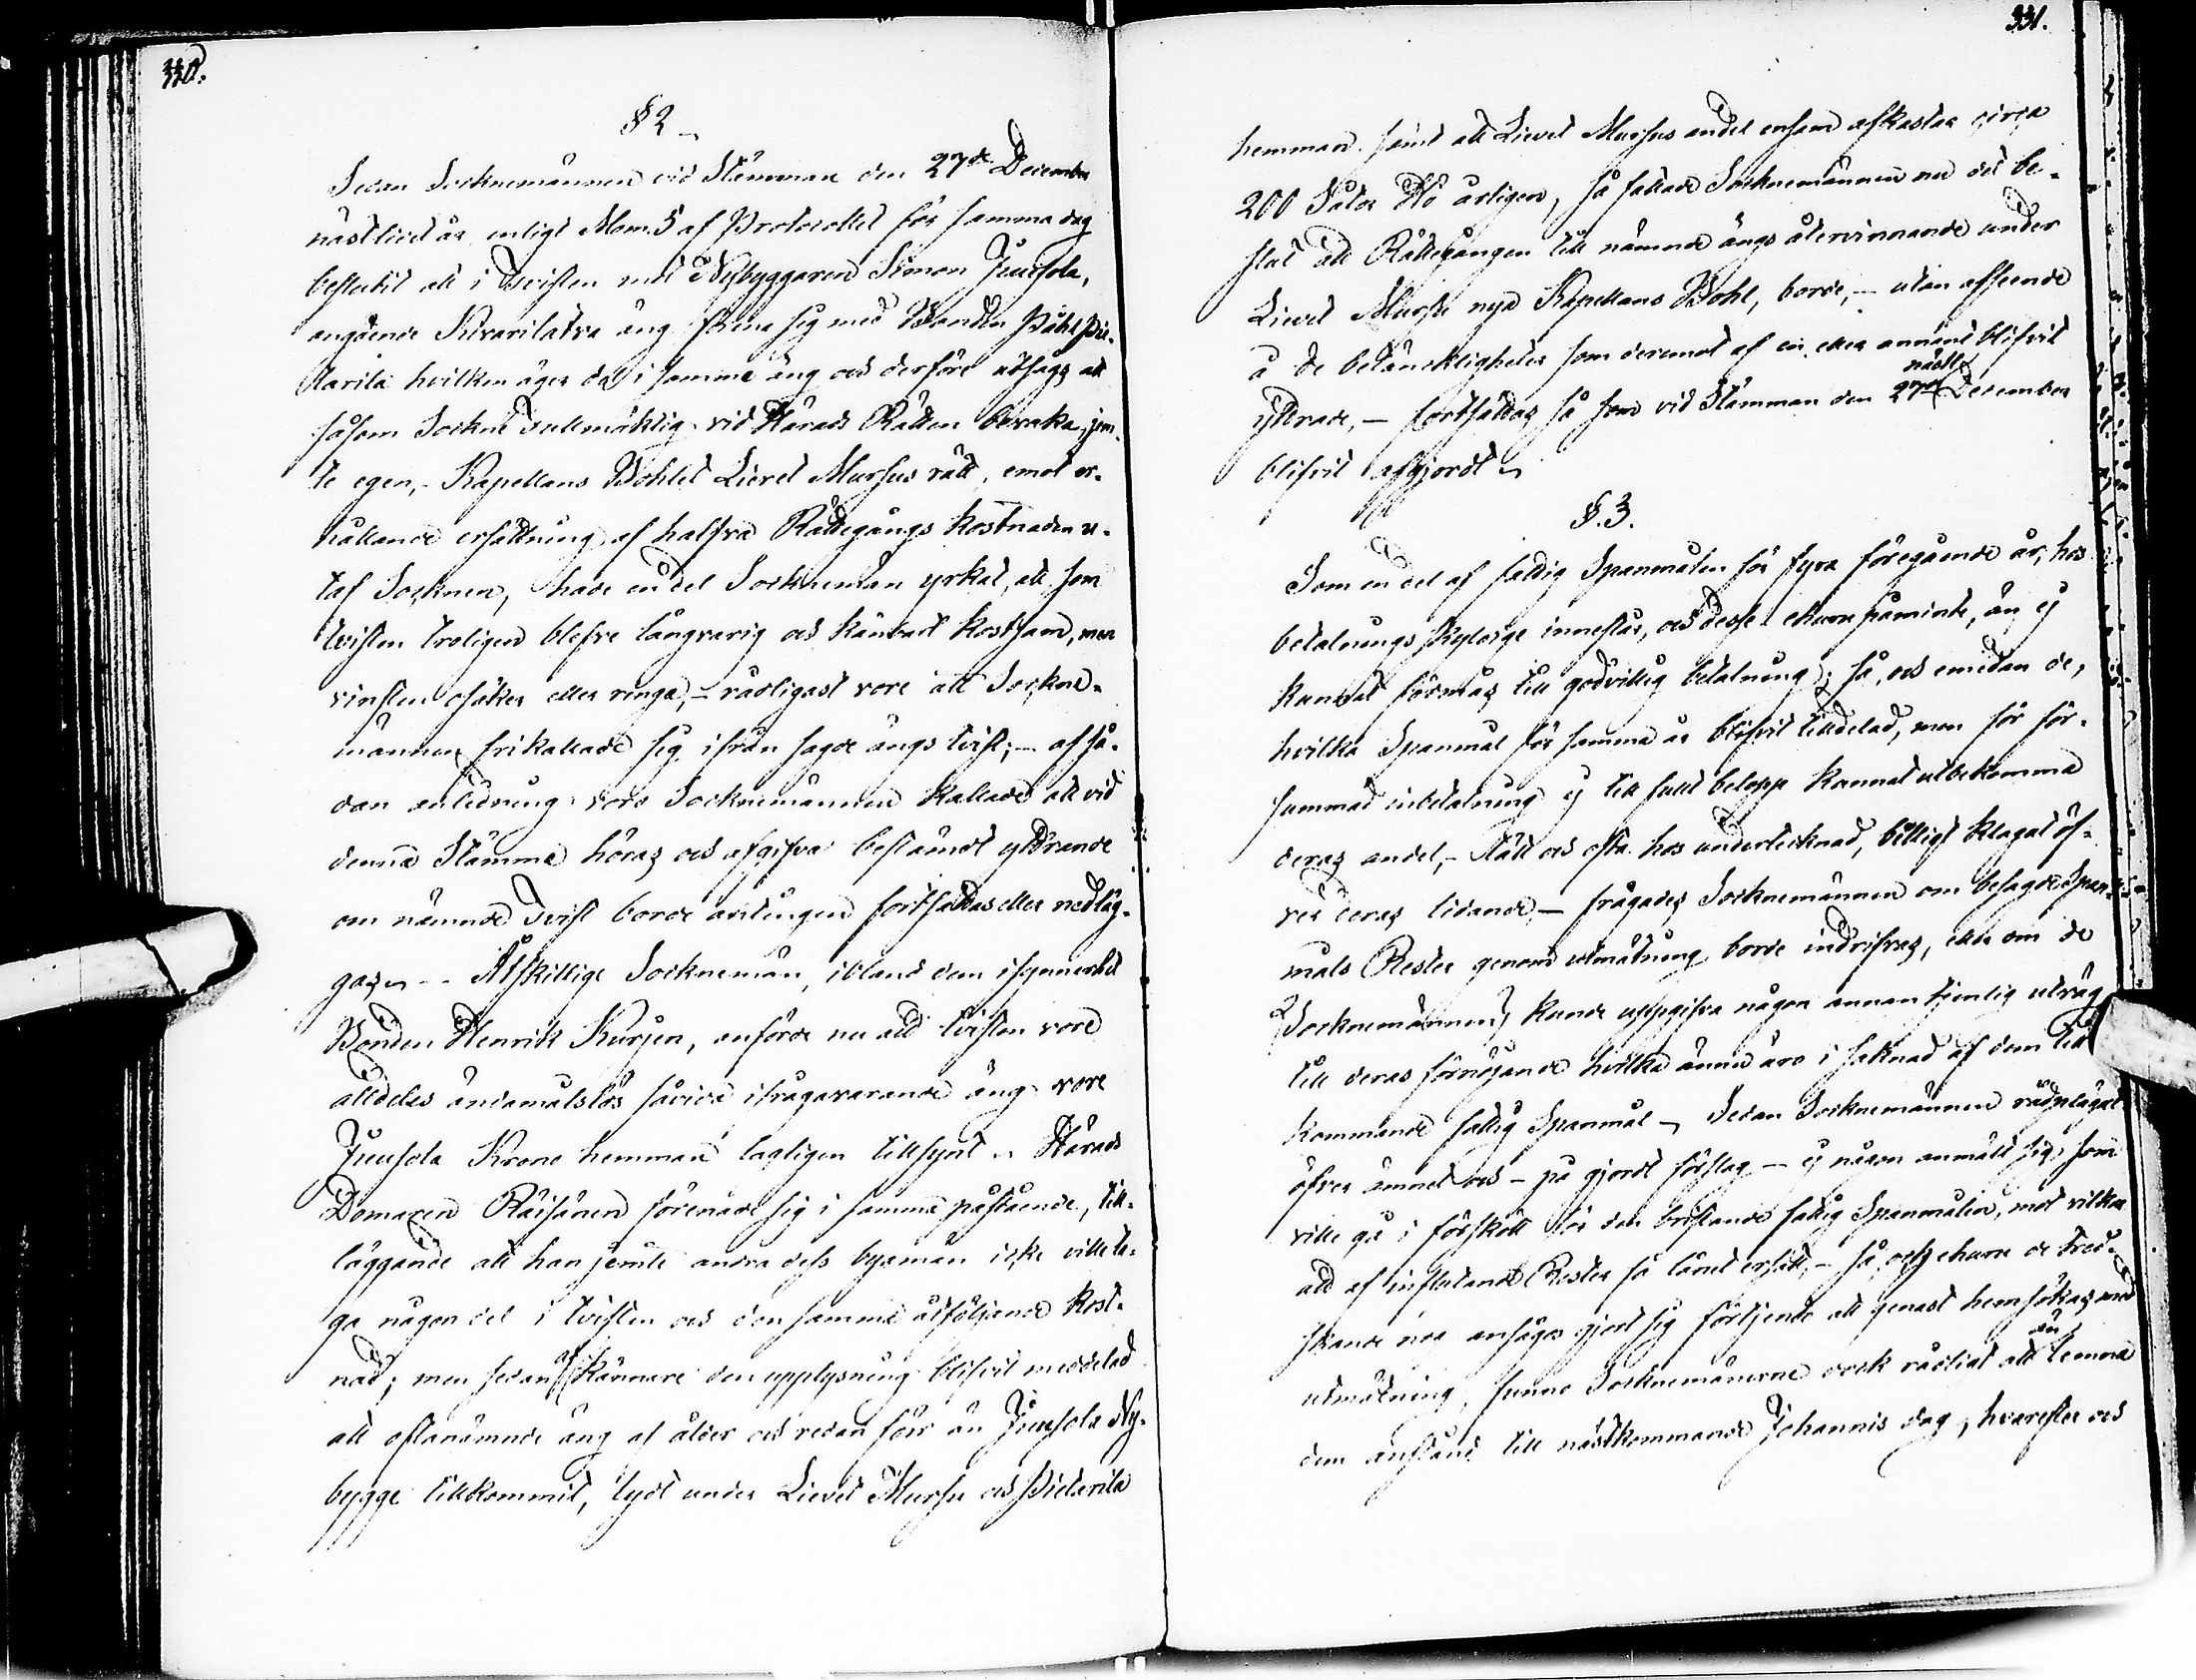 330.
§ 2
Sedan Socknemännen vid Stämman den 27de December
nästlidet år enligt Mom. 5 af Protocollet för samma dag
beslutit att i Tvisten mot Nybyggaren Simon Juusola,
angående Kivarilatva äng förena sig med Bonden Påhl Pie-
tarila hvilken äger del i samma äng och derföre utsågs att
såsom Sockne Fullmäktig vid Härads Rätten bevaka, jem-
te egen, Kapellans Bohlet Lievet Mursus rätt, emot er-
hållande ersättning af halfva Rättegångs Kostnaden u-
taf Socknen, hade en del Socknemän yrkat, att som
tvisten troligen blefve långvarig och kännbart kostsam, men
vinsten osäker eller ringa, – rådligast vore att Sockne-
männen frikallade sig ifrån sagde ängs tvist; – af så-
dan anledning voro Socknemännen kallade att vid
denna Stämma höras och afgifva bestämdt yttrande
om nämnde Tvist borde antingen fortsättas eller nedläg-
gas. – Åtskillige Socknemän, ibland dem isynnerhet
Bonden Henrik Kurjen, anförde nu att tvisten vore
alldeles ändamålslös såvida ifrågavarande äng vore
Juusola Krono hemman lagligen tillsynt. Härads
Domaren Räisänen förenade sig i samma påstående, till-
läggande att han jemte andra dess byamän icke ville ta-
ga någon del i tvisten och den samma åtföljande kost-
nad; men sedan af Kännare den upplysning blifvit meddelad
att oftanämnde äng af ålder och redan förr än Juusola Ny-
bygge tillkommit, lydt under Lievet Mursu och Pietarila
331.
hemman samt att Lievet Mursus andel ensam afkastar circa
200 Såtar Hö årligen, så fattade Socknemännen nu det be-
slut att Rättegången till nämnde ängs återvinnande under
Lievet Mursu nya Kapellans Bohl, borde, – utan afseende
å de betänkligheter som deremot af en eller annan blifvit
yttrade, – fortsättas så som vid Stämman den 27de nästl. December
blifvit afgjordt
§. 3.
Som en del af fattig Spanmålen för fyra föregående år, hos
betalnings skyldige innestår, och desse ehuru påminte, än ej
kunnat förmås till godvillig betalning; så, och emedan de,
hvilka Spanmål för samma år blifvit tilldelad, men för för-
summad inbetalning ej till fullt belopp kunnat utbekomma
deras andel, – tätt och ofta hos undertecknad, billigt klagat öf-
ver deras lidande, – frågades Socknemännen om besagde Span-
måls Rester genom utmätning borde indrifvas, eller om de
Socknemännen kunde uppgifva någon annan tjenlig utväg
till deras förnöjande hvilka ännu äro i saknad af dem till
kommande fattig Spanmål – Sedan Socknemännen rådplägat
öfver ämnet och – på gjordt förslag – ej någon anmält sig, som
ville gå i förskott för den bristande fattig Spanmålen, mot vilkor
att af influtande Rester få lånet ersatt, – så, och ehuru de tred-
skande nog ansågos gjort sig förtjente att genast hemsökas med
utmätning, funno Socknemännen dock rådligt att än lemna
dem anstånd till nästkommande Johannis dag, hvarefter och